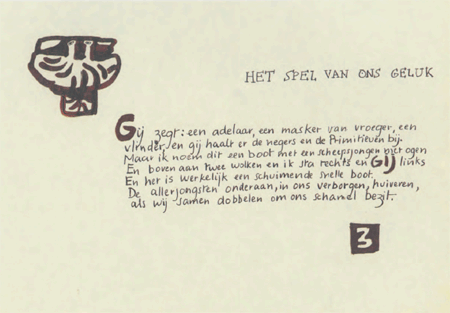 HET SPEL VAN ONS GELUK
Gij zegt: een adelaar, een masker van vroeger, een
vlinder, en gij haalt er de negers en de Primitieven bij.
Maar ik noem dit een boot met een scheepsjongen ogen
En boven aan twee wolken en ik sta rechts en Gij links
En het is werkelijk een schuimende snelle boot.
De allerjongsten onderaan, in ons verborgen, huiveren,
als wij samen dobbelen om ons schamel bezit.
3